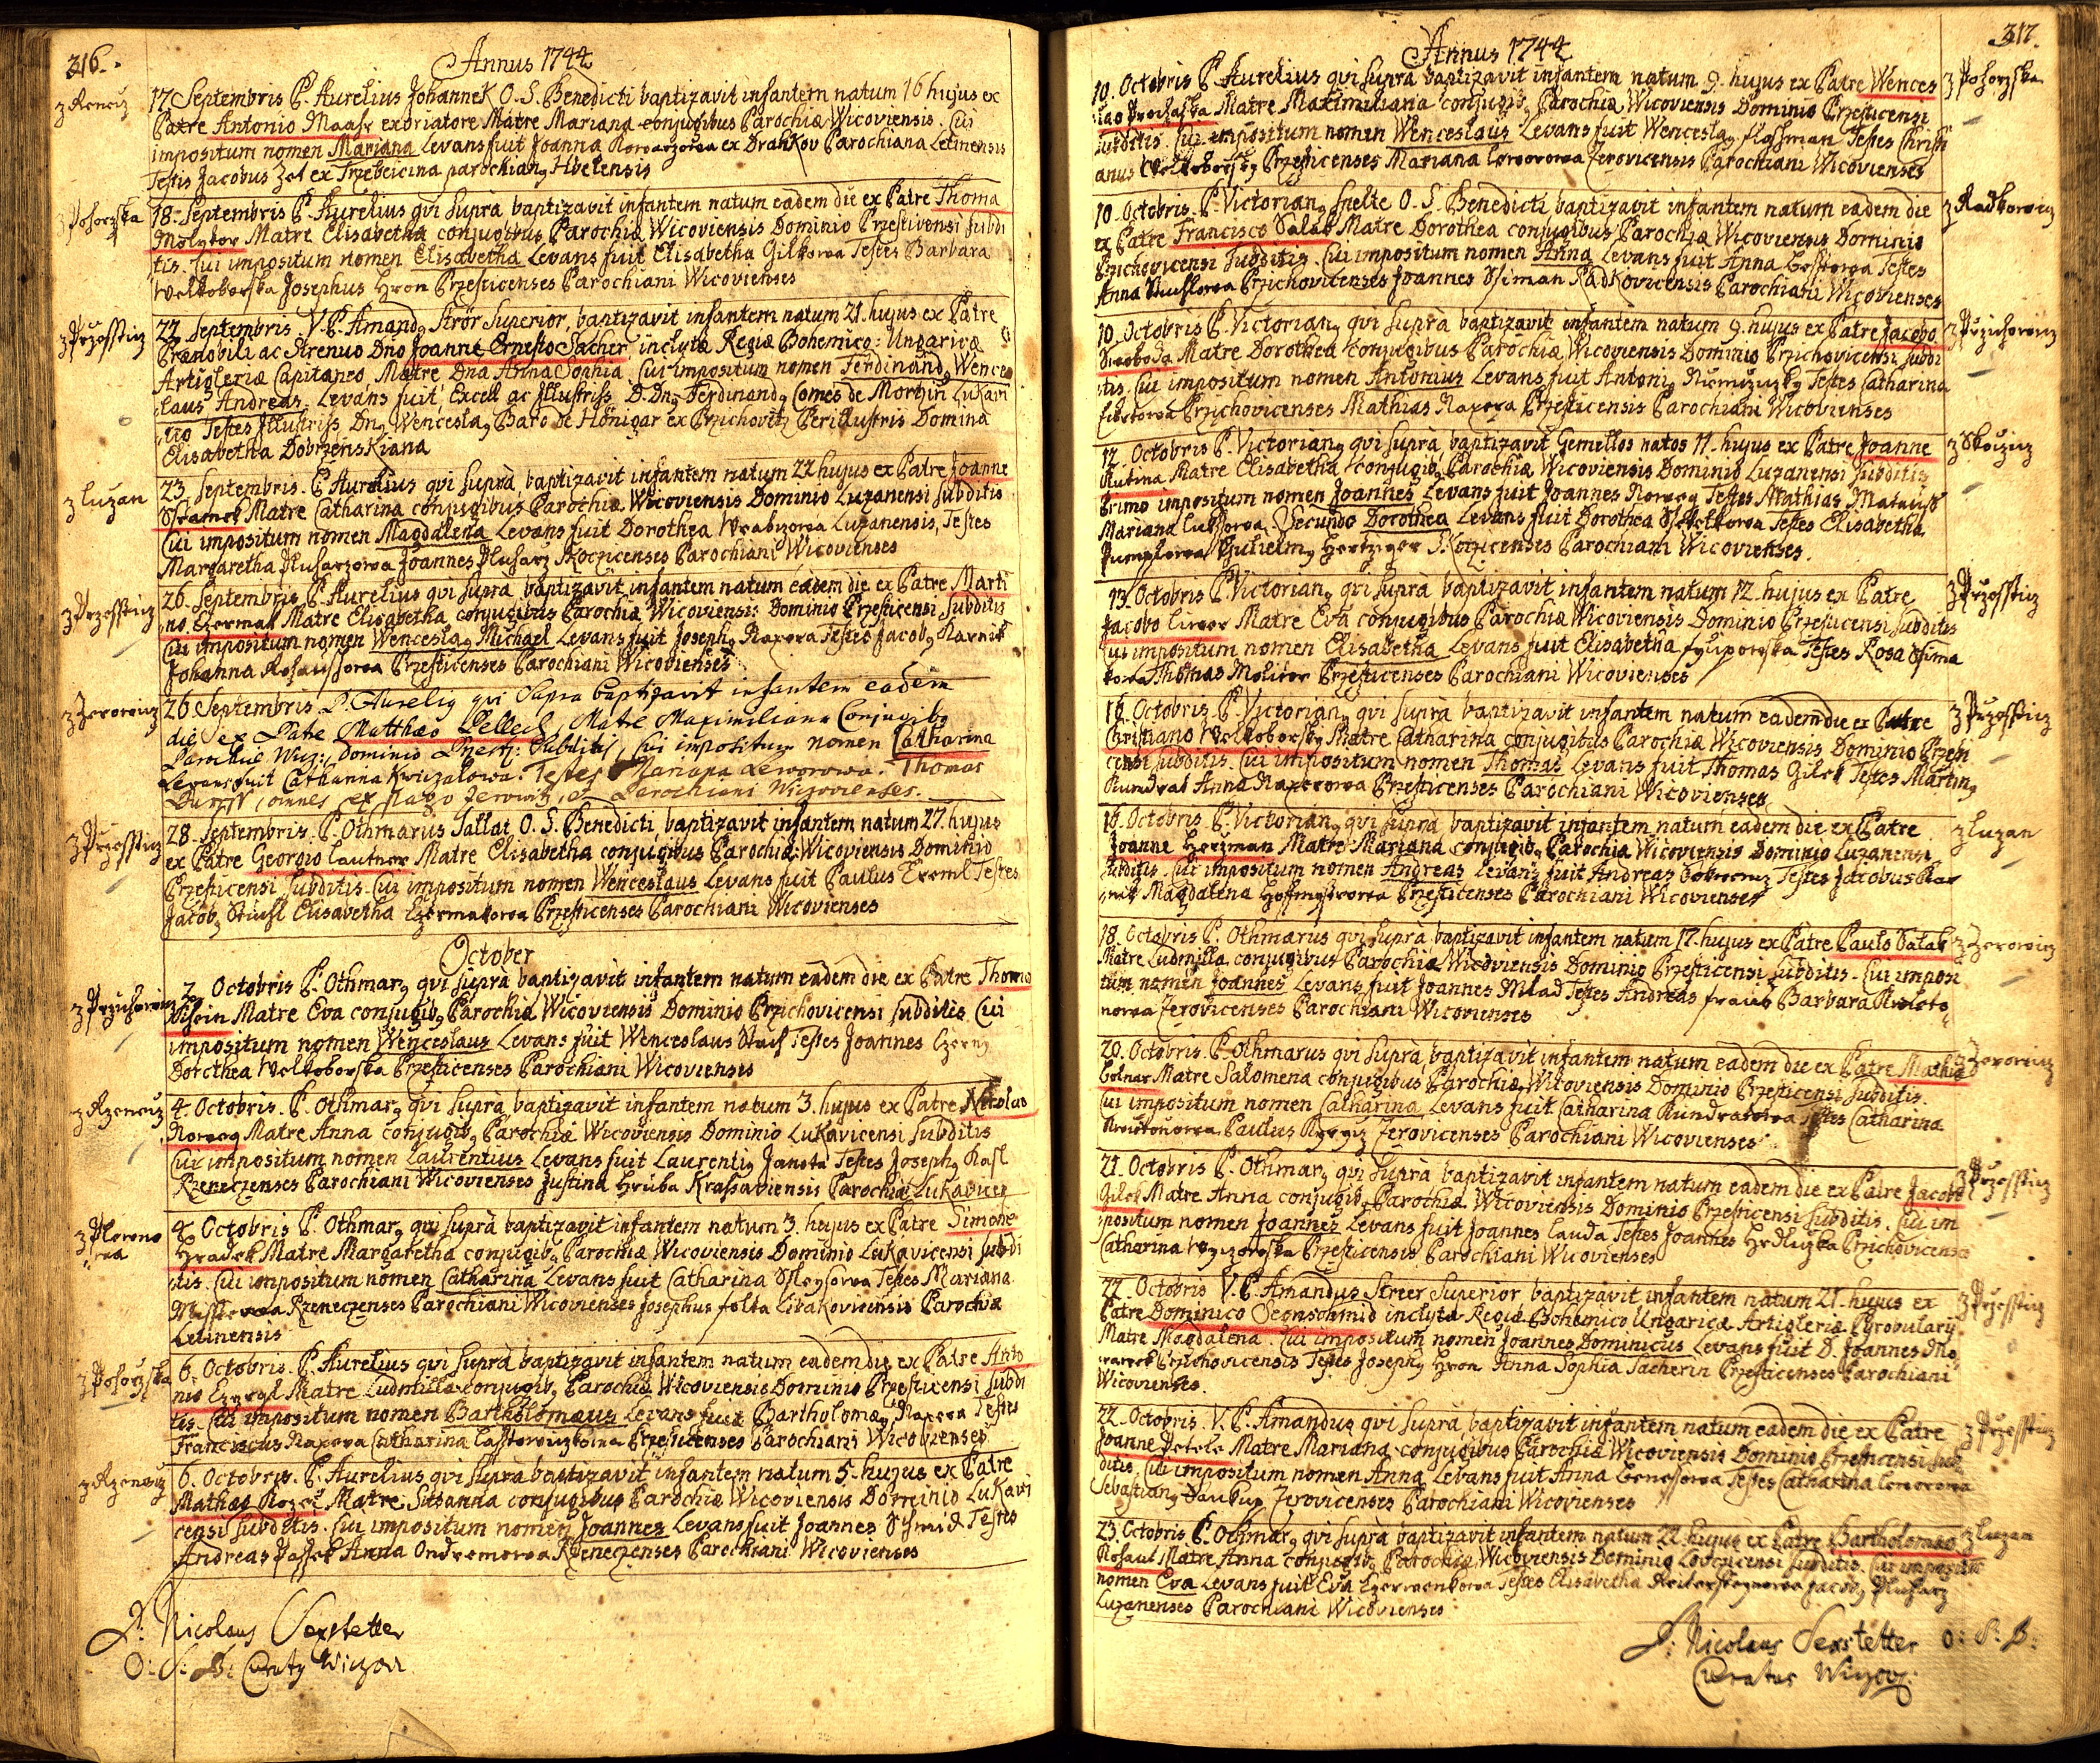 316.
Annus 1744
z Renecz
17 Septembris P. Aurelius Johannek O. S. Benedicti baptizavit infantem natum 16 hujus ex
Patre Antonio Maasr Matre Mariana conjugibus Parochiæ Wicoviensis. Cui
impositum nomen Mariana Levans fuit Joanna Kowarzowa ex Drahkov Parochiana Letinensis
Testis Jacobus Zel ex Trzebeicina parochiang
18. Septembris P. Aurelius qvi suprà baptizavit infantem natum eadem die ex Patre Thoma
Molytor Matre Elisabetha conjugibus Parochiæ Wicoviensis Dominio Przesticensi Subdi
tis. Cui impositum nomen Elisabetha Levans fuit Elisabetha Gilkowa Testes Barbara
Welkoborska Josephus Hron Przesticenses Parochiani Wicovienses
z Przessticz
22. Septembris. V. P. Amandg Strör Superior, baptizavit infantem natum 21. hujus ex Patre
Prænobili ac Strenuo Dno Joanne Ernesto Sacher, inclytæ Regiæ Bohemico: Ungaricæ
Artigleriæ Capitaneo, Matre Dna Anna Sophia. Cui impositum nomen Ferdinandg Wences
laus Andreas. Levans fuit Excell ac Illustriss D. Dng Ferdinandg Comes de Mortzin Lukavi
Testes Illustriss Dng Wenceslag Baro de Hönigar ex Przichovitz Perillustris Domina
Elisabetha Dobrzenskiana
z Luzan
23. Septembris. P. Aurelius qvi suprà baptizavit infantem natum 22 hujus ex Patre Joanne
Sramek Matre Catharina conjugibus Parochiæ Wicoviensis Dominio Luzanensi Subditis
Cui impositum nomen Magdalena Levans fuit Dorothea Wrabzowa Luzanensis, Testes
Margaretha Pluharzowa Joannes Pluharz Rocziczenses Parochiani Wicovienses
z Przessticz
26. Septembris P. Aurelius qvi suprà baptizavit infantem natum eadem die ex Patre Marti
no Czermak Matre Elisabetha conjugibus Parochiæ Wicoviensis Dominio Przesticensi Subditis
Cui impositum nomen Wenceslag Michael Levans fuit Josephg Raxera Testes Jacobg
Johanna Przesticenses Parochiani Wicovienses
z Zerowicz
26 Septembris P. Aurelig qui Supra baptizavit infantem eadem
die ex Patre Matthæo Pelleck, Matre Maximiliana Conjugibg
Parochiæ Wicz: Dominio Przest: Subditis, Cui impositum nomen Catharina
Levans fuit Catharina Kwiczalowa. Testes Mariana Leworowa. Thomas
omnes ex pago Zerovitz, et Parochiani Wicovienses.
z Przessticz
28. Septembris. P. Othmarus Sallai O. S. Benedicti baptizavit infantem natum 27. hujus
ex Patre Georgio Lautner Matre Elisabetha conjugibus Parochiæ Wicoviensis Dominio
Przesticensi Subditis. Cui impositum nomen Wenceslaus Levans fuit Paulus Treml Testes
Jacobg Stuchl Elisabetha Czermakowa Przesticenses Parochiani Wicovienses
October
2. Octobris P. Othmarg qvi suprà baptizavit infantem natum eadem die ex Patre Thoma
Matre Eva conjugibg Parochiæ Wicoviensis Dominio Przichovicensi subditis Cui
impositum nomen Wenceslaus Levans fuit Wenceslaus Testes Joannes Czerny
Dorothea Welkoborska Przesticenses Parochiani Wicovienses
z Rzenecz
4. Octobris. P. Othmarg qvi suprà baptizavit infantem natum 3. hujus ex Patre Nicolao
Matre Anna conjugibg Parochiæ Wicoviensis Dominio Lukavicensi Subditis
Cui impositum nomen Laurentius Levans fuit Laurentig Janota Testes Josephg Kasl
Rzeneczenses Parochiani Wicovienses Justina Hruba Krassaviensis Parochiæ Lukavicen
4. Octobris P. Othmarg qvi suprà baptizavit infantem natum 3. hujus ex Patre Simone
Hradek Matre Margaretha conjugibg Parochiæ Wicoviensis Dominio Lukavicensi subdi
tis. Cui impositum nomen Catharina Levans fuit Catharina Testes Mariana
Rzeneczenses Parochiani Wicovienses Josephus Folta Parochiæ
Letinensis
6. Octobris. P. Aurelius qvi suprà baptizavit infantem natum eadem die ex Patre Anto
nio Matre Ludmilla conjugibg Parochiæ Wicoviensis Dominio Przesticensi Subdi
tis. Cui impositum nomen Bartholomæus Levans fuit Bartholomæg Raxera Testes
Franciscus Raxera Catharina Przesticenses Parochiani Wicovienses
z Rzenecz
6. Octobris. P. Aurelius qvi suprà baptizavit infantem natum 5. hujus ex Patre
Mathæo Matre Susanna conjugibus Parochiæ Wicoviensis Dominio Lukavi
censi subditis. Cui impositum nomen Joannes Levans fuit Joannes Schmid Testes
Andreas Anna Ondremowa Rzeneczenses Parochiani Wicovienses
P: Nicolaus Sexstetter
O: S: B: Curatg Wiczov
317.
Annus 1744
z Pohorzska
10. Octobris P. Aurelius qvi suprà baptizavit infantem natum 9. hujus ex Patre Wences
lao Prochaska Matre Maximiliana conjugibg Parochiæ Wicoviensis Dominio Przesticensi
subditis. Cui impositum nomen Wenceslaus Levans fuit Wenceslag Flosman Testes Christi
anus Welkoborskg Przesticenses Mariana Leworowa Zerovicensis Parochiani Wicovienses
z Radkowicz
10. Octobris. P. Victoriang Snelte O. S. Benedicti baptizavit infantem natum eadem die
ex Patre Francisco Salak Matre Dorothea conjugibus Parochiæ Wicoviensis Dominio
Przichovicensi Subditis. Cui impositum nomen Anna Levans fuit Anna Testes
Anna Przichovicenses Joannes Ssiman Radkovicensis Parochiani Wicovienses
z Przichowicz
10. Octobris P. Victoriang qvi suprà baptizavit infantem natum 9. hujus ex Patre Jacobo
Swoboda Matre Dorothea conjugibus Parochiæ Wicoviensis Dominio Przichovicensi subdi
tis. Cui impositum nomen Antonius Levans fuit Antonig Testes Catharina
Przichovicenses Mathias Raxera Przesticensis Parochiani Wicovienses
z Skoczicz
12. Octobris P. Victoriang qvi suprà baptizavit Gemellos natos 11. hujus ex Patre Joanne
Kutina Matre Elisabetha conjugibg Parochiæ Wicoviensis Dominio Luzanensi Subditis
Primo impositum nomen Joannes Levans fuit Joannes Testes Mathias Matauss
Mariana. Secundo Dorothea Levans fuit Dorothea Testes Elisabetha
Guilielmg Hertziger Parochiani Wicovienses.
z Przessticz
13. Octobris P. Victoriang qvi suprà baptizavit infantem natum 12. hujus ex Patre
Jacobo Matre Eva conjugibus Parochiæ Wicoviensis Dominio Przesticensi subditis
Cui impositum nomen Elisabetha Levans fuit Elisabetha Testes Rosa Ssima
kowa Thomas Molitor Przesticenses Parochiani Wicovienses
z Przessticz
16. Octobris. P. Victoriang qvi suprà baptizavit infantem natum eadem die ex Patre
Christiano Welkoborskg Matre Catharina conjugibus Parochiæ Wicoviensis Dominio Przesti
censi subditis. Cui impositum nomen Thomas Levans fuit Thomas Gilek Testes Marting
Kundrat Anna Raxerowa Przesticenses Parochiani Wicovienses
z Luzan
16. Octobris. P. Victoriang qvi suprà baptizavit infantem natum eadem die ex Patre
Joanne Herzman Matre Mariana conjugibg Parochiæ Wicoviensis Dominio Luzanensi
subditis. Cui impositum nomen Andreas Levans fuit Andreas Testes Jacobus
Magdalena Przesticenses Parochiani Wicovienses
z Zerowicz
18. Octobris P. Othmarus qvi suprà baptizavit infantem natum 17. hujus ex Patre Paulo Salak
Matre Ludmilla conjugibus Parochiæ Wicoviensis Dominio Przesticensi subditis. Cui imposi
tum nomen Joannes Levans fuit Joannes Mlad Testes Andreas Barbara
Zerovicenses Parochiani Wicovienses
z Zerowicz
20. Octobris. P. Othmarus qvi suprà baptizavit infantem natum eadem die ex Patre Mathia
Matre Salomena conjugibus Parochiæ Wicoviensis Dominio Przesticensi Subditis.
Cui impositum nomen Catharina Levans fuit Catharina Kundratowa Testes Catharina
Paulus Zerovicenses Parochiani Wicovienses
z Przessticz
21. Octobris P. Othmarg qvi suprà baptizavit infantem natum eadem die ex Patre Jacobo
Gilek Matre Anna conjugibg Parochiæ Wicoviensis Dominio Przesticensi Subditis. Cui im
positum nomen Joannes Levans fuit Joannes Lauda Testes Joannes Hrdliczka Przichovicensis
Catharina Przesticensis Parochiani Wicovienses
z Przessticz
22. Octobris V. P. Amandus Streer Superior baptizavit infantem natum 21. hujus ex
Patre Dominico Seonschmid inclytæ Regiæ Bohemico Ungaricæ Artigleriæ Pyrobulary
Matre Magdalena. Cui impositum nomen Joannes Dominicus Levans fuit D. Joannes
Przichovicensis Testes Josephg Hron Anna Sophia Sacherin Przesticenses Parochiani
Wicovienses.
z Przessticz
22. Octobris. V. P. Amandus qvi suprà baptizavit infantem natum eadem die ex Patre
Joanne Petele Matre Mariana conjugibus Parochiæ Wicoviensis Dominio Przesticensi sub
ditis. Cui impositum nomen Anna Levans fuit Anna Benessowa Testes Catharina Leworowa
Sebastiang Zerovicenses Parochiani Wicovienses
z Luzan
23. Octobris P. Othmarg qvi suprà baptizavit infantem natum 22 hujus ex Patre Bartholomæo
Matre Anna conjugibg Parochiæ Wicoviensis Dominio subditis. Cui impositum
nomen Eva Levans fuit Eva Czerwenkowa Testes Elisabetha Jacobg Pluharz
Luzanenses Parochiani Wicovienses
P: Nicolaus Sexstetter O: S: B:
Curatus Wiczov: